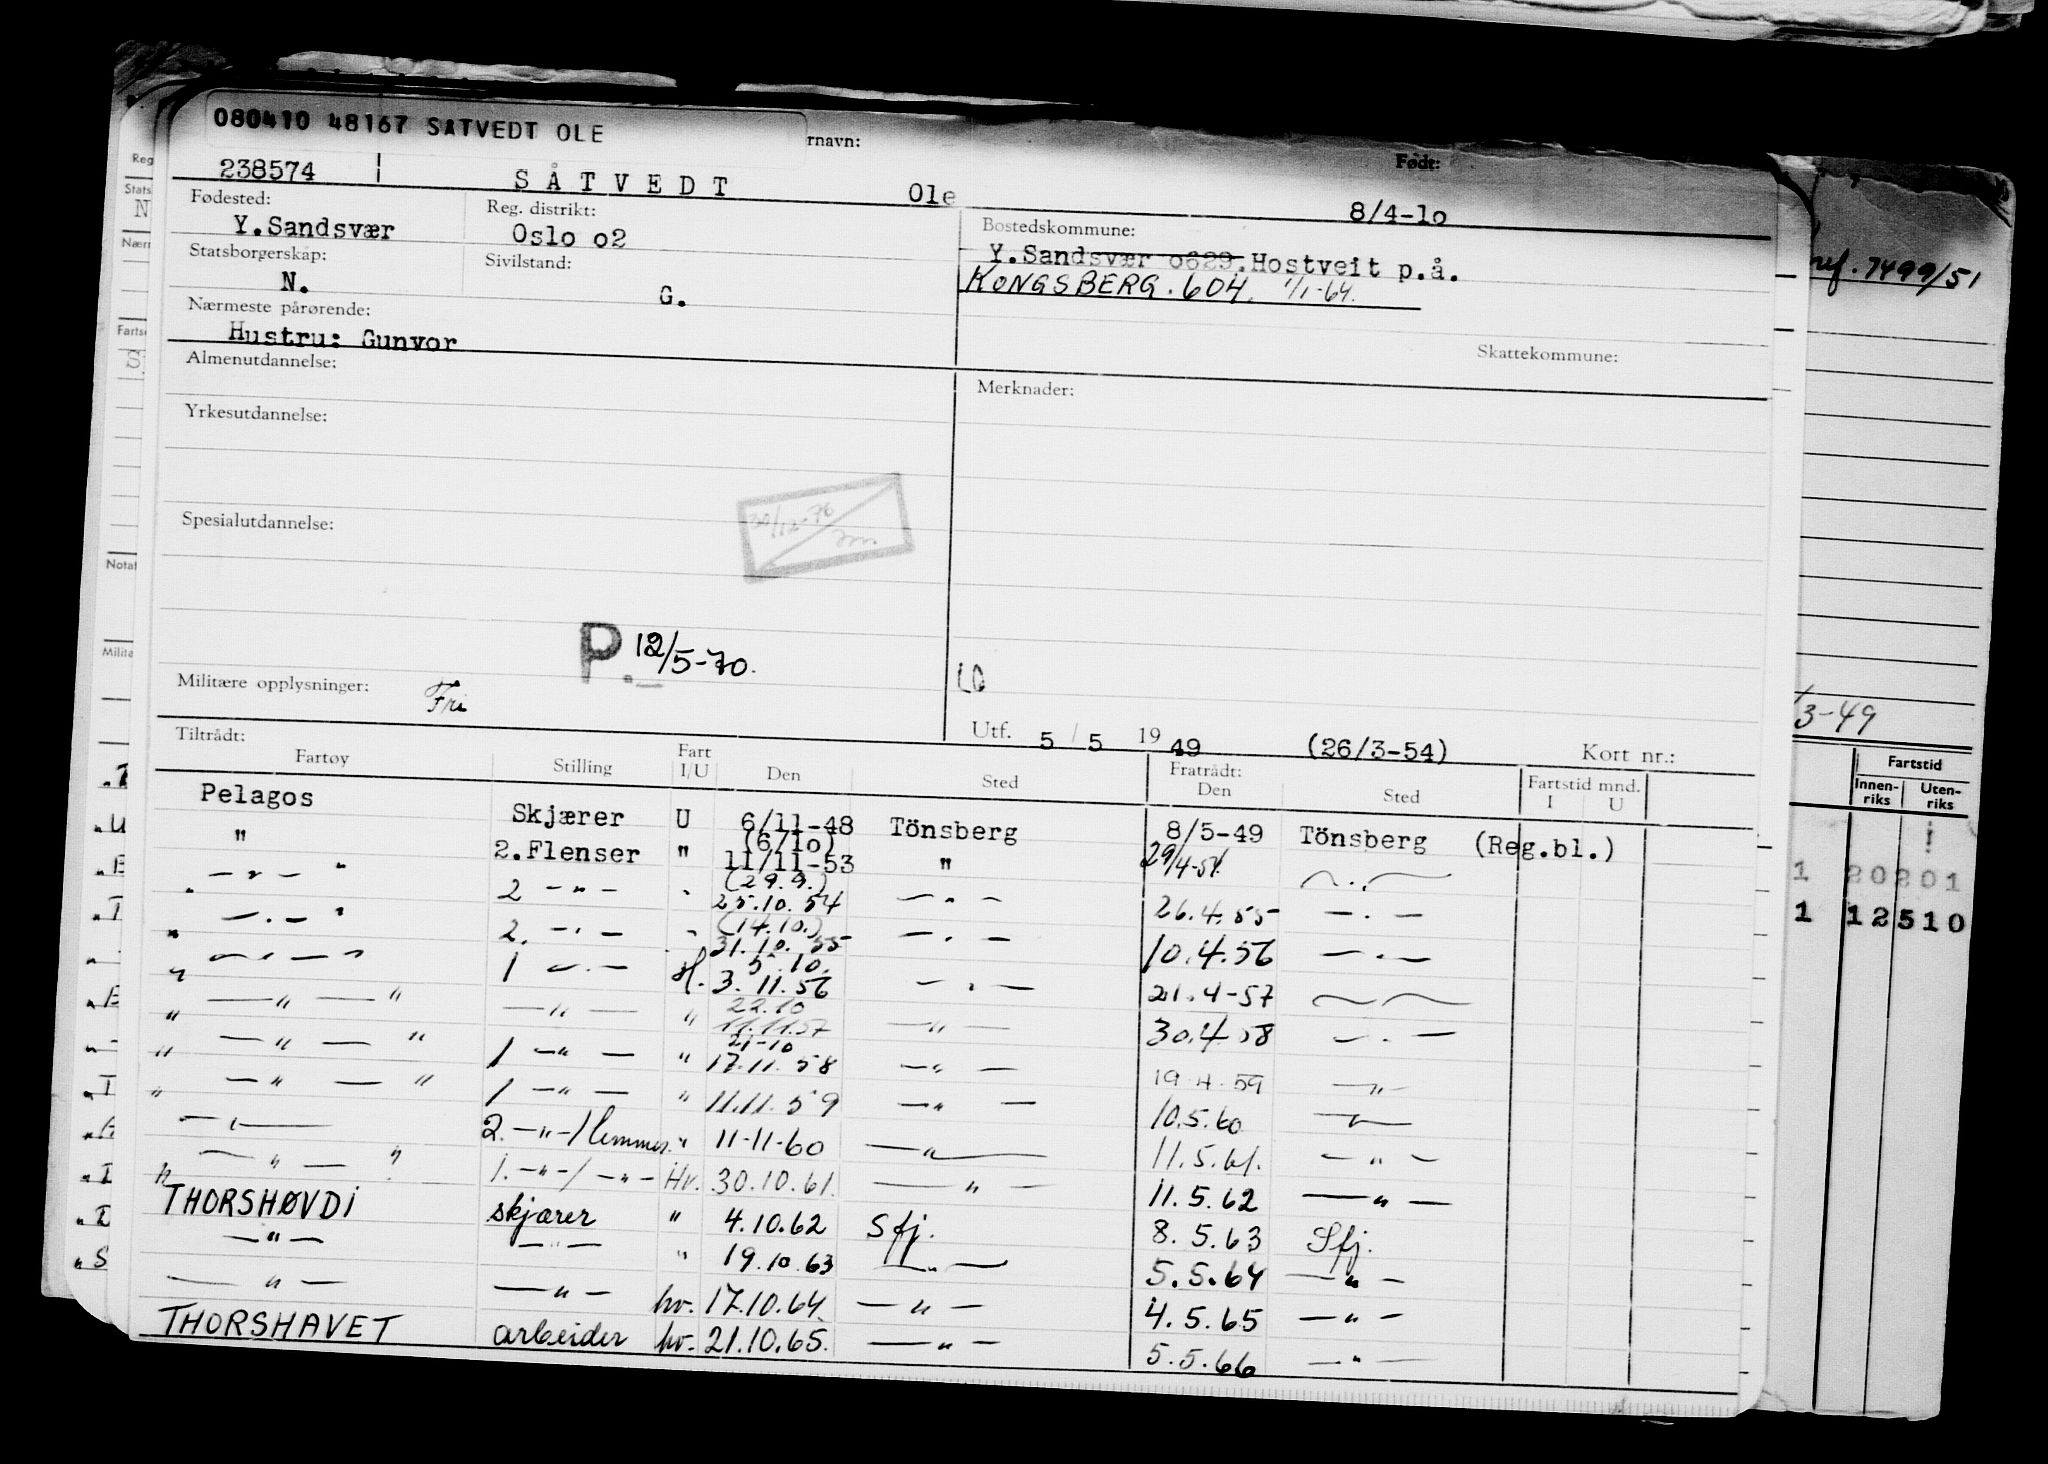 080410 48167 SATVEDT OLE
rnavn: Født:
238574 SÅTVEDT Ole 8/4-1o
Fødested: Reg. distrikt: Bostedskommune:
Y.Sandsvær Oslo o2 Y.Sandsvær o629.Hostveit p.å.
Statsborgerskap: Sivilstand: KONGSBERG. 604. 1/1-64.
N. G.
Nærmeste pårørende:
Hustru: Gunvor Skattekommune:
Almenutdannelse: Merknader:
Yrkesutdannelse:
30/12-76
Spesialutdannelse:
P. 12/5-70.
Militære opplysninger: Fri
Utf. 5 / 5 19 49 (26/3-54) Kort nr.:
Tiltrådt: Fratrådt:
Fartøy Stilling Fart I/U Den Sted Den Sted Fartstid mnd. I U
Pelagos Skjærer U 6/11-48 Tönsberg 8/5-49 Tönsberg (Reg.bl.)
" 2.Flenser " (6/1o) 11/11-53 " 29/4-54.
" — " — " 2 — " — " (29.9.) 25.10.54 — " — 26.4.55 — " —
" — " — " 2. — " — " (14.10.) 31.10.55 — " — 10.4.56 — " —
" — " — " 1 — " — H. 5.10. 3.11.56 — " — 21.4-57
" — " — " — " — " 22.10 11.11.57 — " — 30.4.58 — " —
" — " — " 1 — " — " 21-10 17.11.58 — " — 19.4.59 — " —
" — " — " 1 — " — " 11.11.59 — " — 10.5.60 — " —
— " — 2. — " — / lemmer. " 11-11-60 — " — 11.5.61. — " —
" — " — " 1. — " — / — " — Hv. 30.10.61. — " — 11.5.62 — " —
THORSHØVDI skjærer " 4.10.62 Sfj. 8.5.63 Sfj.
— " — — " — " 19.10.63 — " — 5.5.64 — " —
— " — — " — hv. 17.10.64. — " — 4.5.65 — " —
THORSHAVET arbeider hv. 21.10.65. — " — 5.5.66 — " —
Reg
Stats
N
Nærm
Notat
ref. 7499/51
/3-49
Fartstid
Innen-riks Uten-riks
1 20201
1 12510